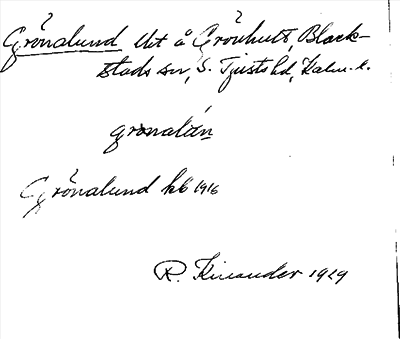 Grönalund lht å Grönhult, Black-
stads sn, S. Tjusts hd, Kalm. l.
grønalún
Grönalund kb 1916
R. Kinander 1929